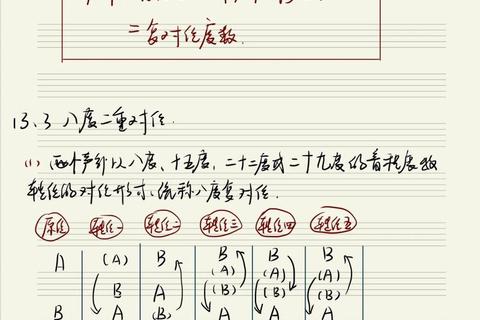 二复对位度数.
13.3 八度二重对位.
(1) 两个声部以八度、十五度、二十二度或二十九度的音程度数
转位的对位形式,统称八度复对位.
原位 转位一 转位二 转位三 转位四 转位五
A (A) B B B B
(A) (A) (A)
B A (B) (B) (B)
B A (B) A A A